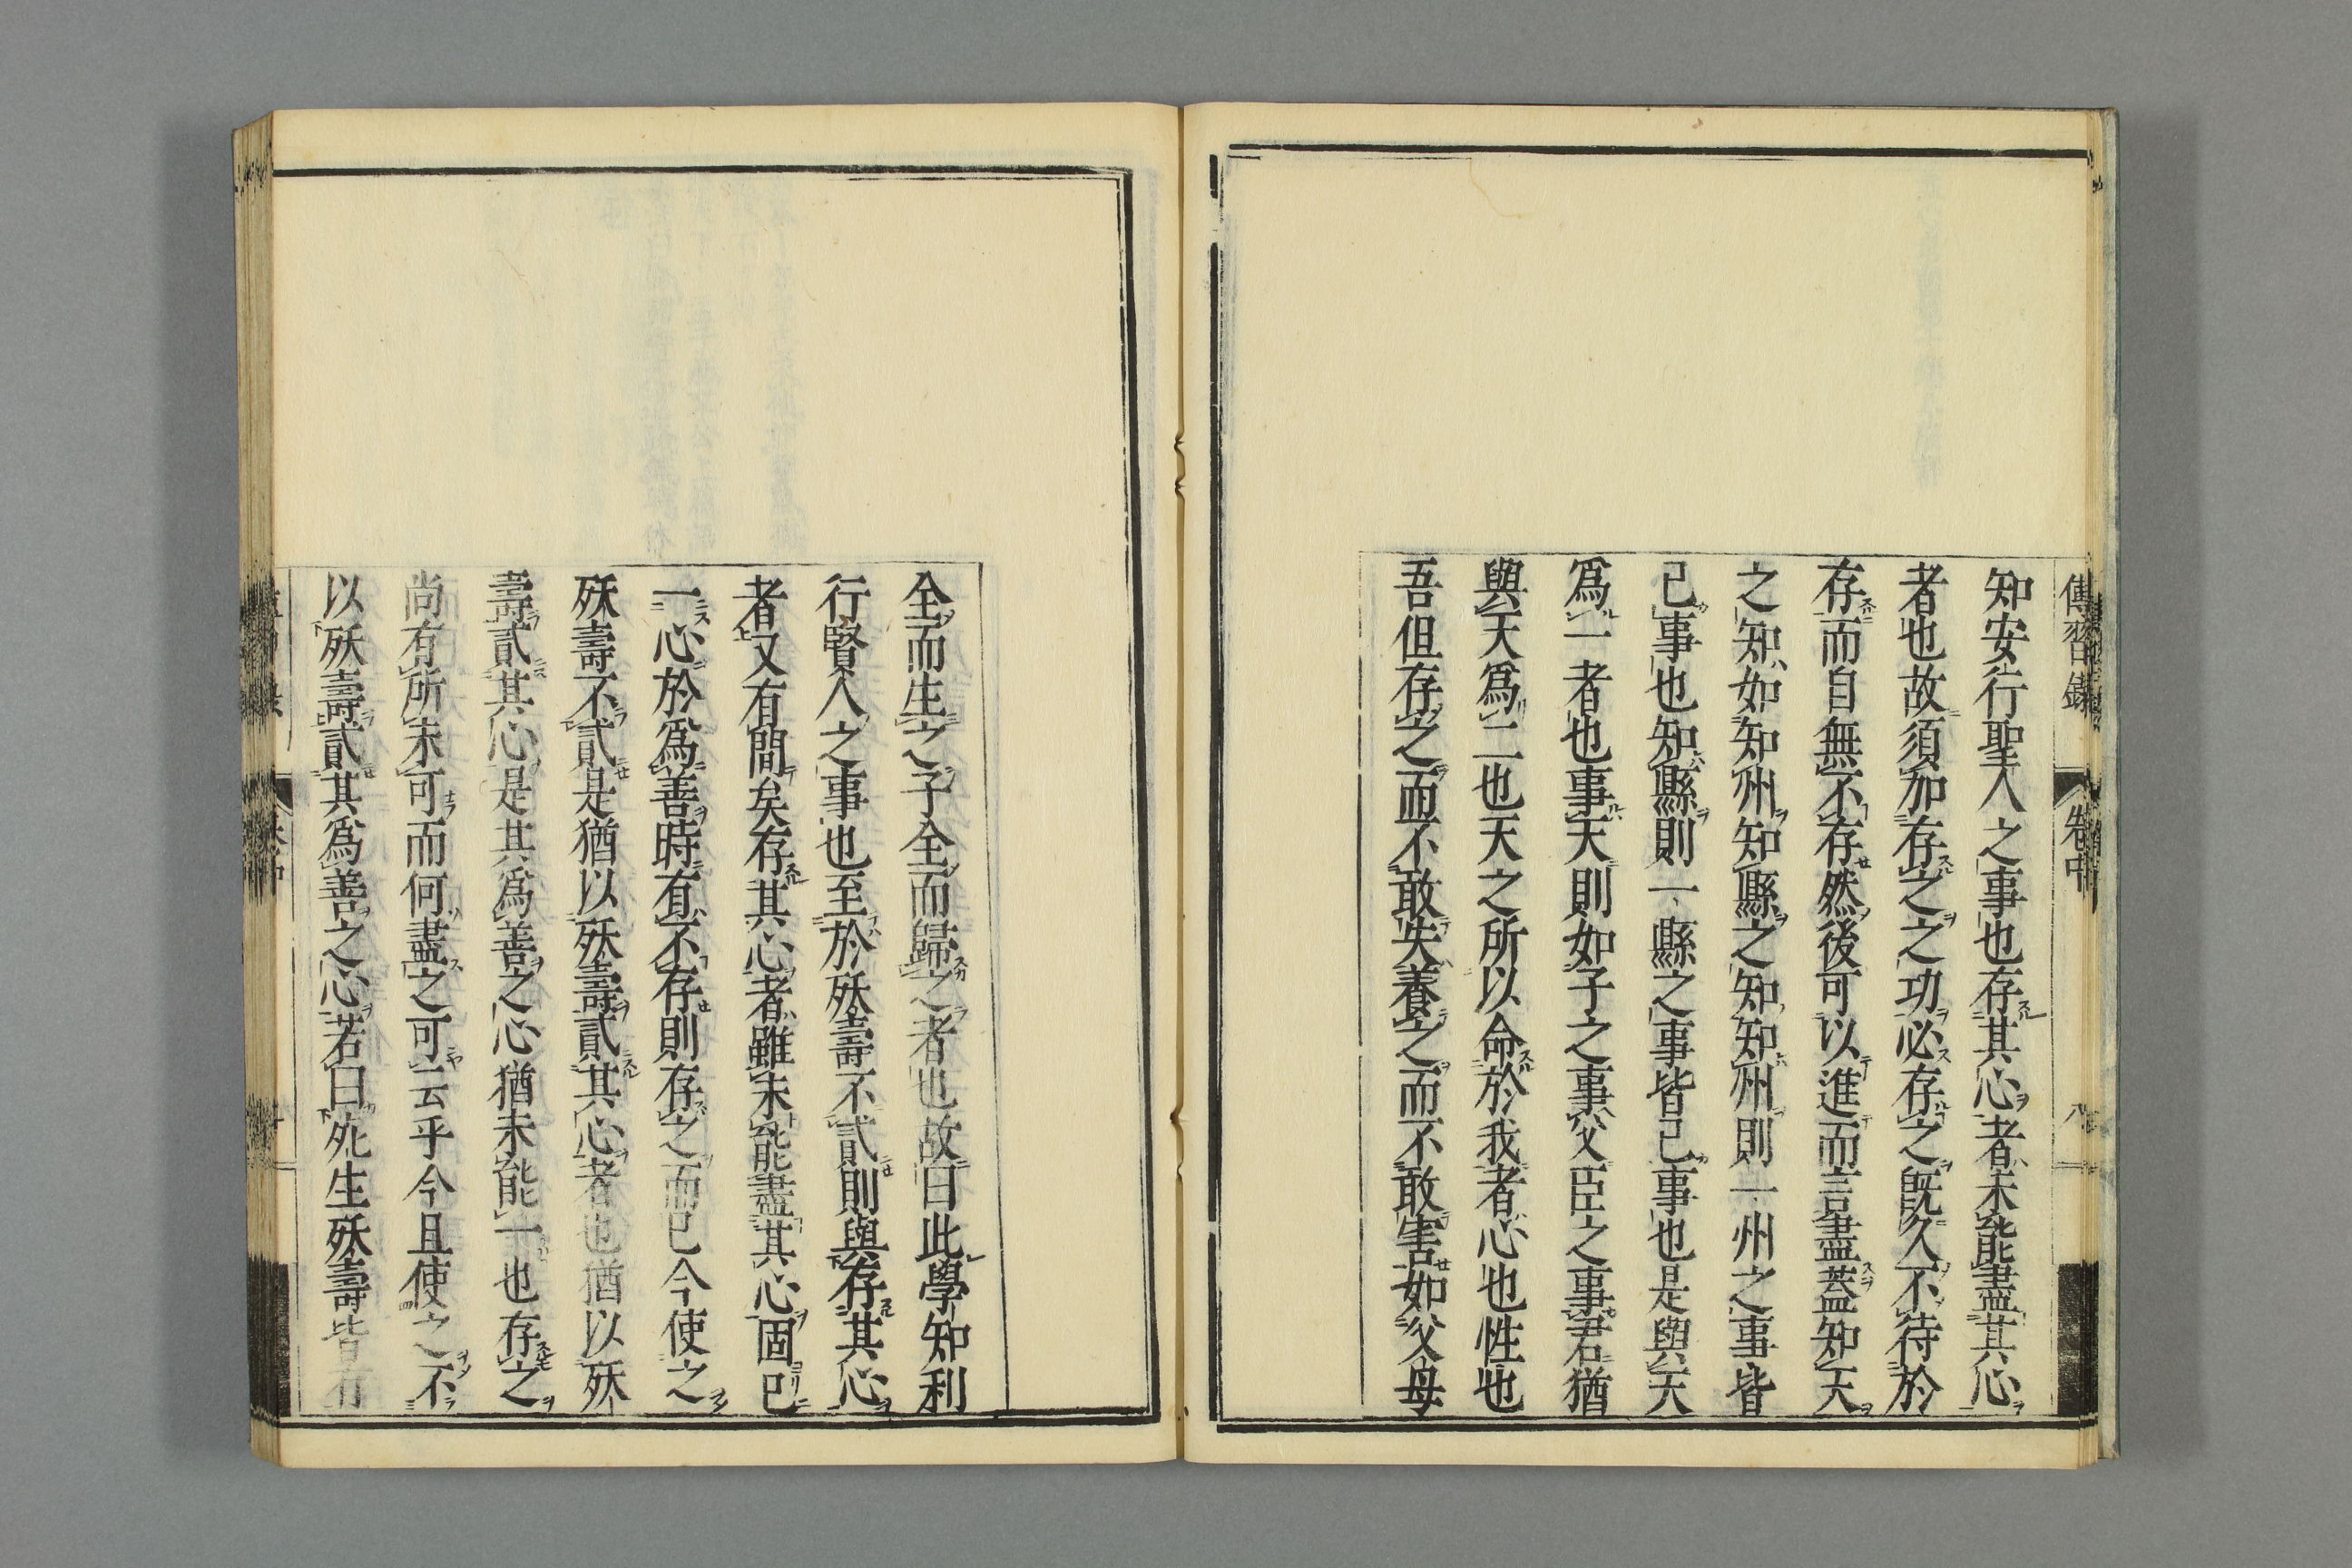 傳習錄 卷中 八
知安行聖人之事也存其心者未能盡其心
者也故須加存之之功必存之既久不待於
存而自無不存然後可以進而言盡蓋知天
之知如知州知縣之知知州則一州之事皆
己事也知縣則一縣之事皆己事也是與天
爲一者也事天則如子之事父臣之事君猶
與天爲二也天之所以命於我者心也性也
吾但存之而不敢失養之而不敢害如父母
全而生之子全而歸之者也故曰此學知利
行賢人之事也至於殀壽不貳則與存其心
者又有間矣存其心者雖未能盡其心固已
一心於爲善時有不存則存之而已今使之
殀壽不貳是猶以殀壽貳其心者也猶以殀
壽貳其心是其爲善之心猶未能一也存之
尚有所未可而何盡之可云乎今且使之不
以殀壽貳其爲善之心若曰死生殀壽皆有